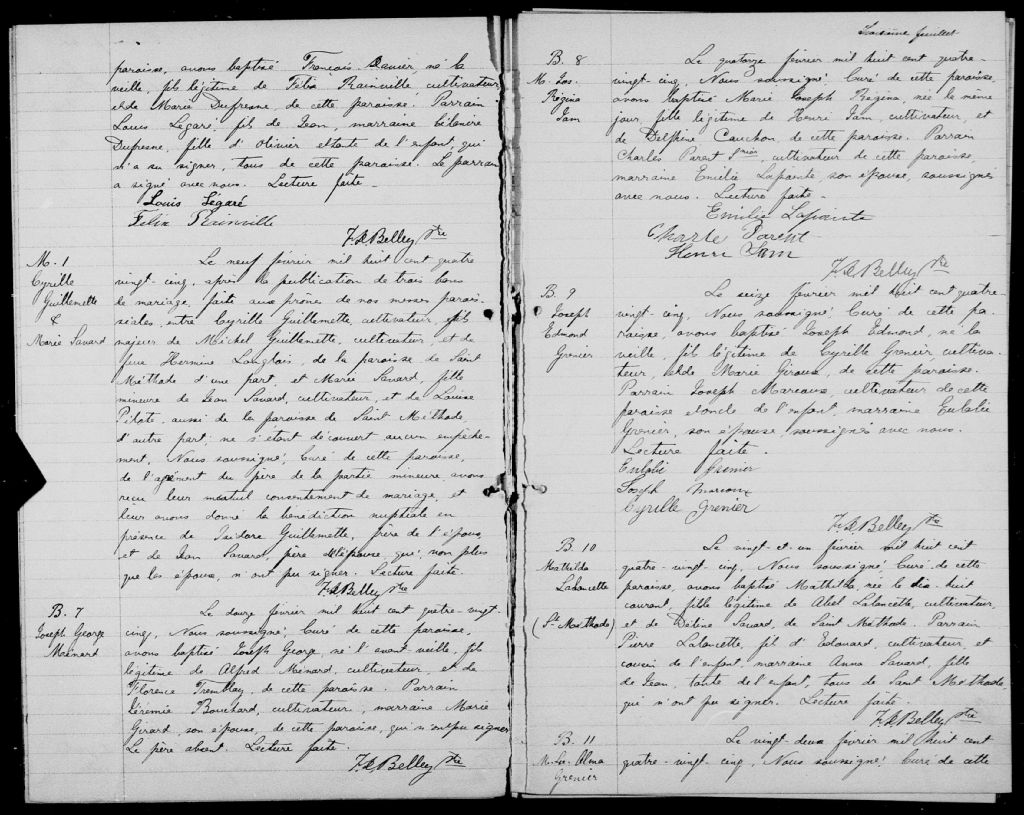 paroisse, avons baptisé François Xavier, né la
veille, fils légitime de Félix Rainville cultivateur
et de Marie Dufresne, de cette paroisse. Parrain
Louis Légaré, fils de Jean, marraine
Dufresne, fille d'Olivier et tante de l'enfant, qui
n'a su signer, tous de cette paroisse. Le parrain
a signé avec nous. Lecture faite.
Louis Légaré
Felix Rainville
F.X. Belley Ptre
M. 1
Cyrille
Guillemette
&
Marie Savard
Le neuf février mil huit cent quatre
vingt-cinq, après la publication de trois bans
de mariage, faite aux prônes de nos messes parois-
siales, entre Cyrille Guillemette, cultivateur, fils
majeur de Michel Guillemette, cultivateur, et de
feue Hermine Langlais, de la paroisse de Saint
Méthode d'une part, et Marie Savard, fille
mineure de Jean Savard, cultivateur, et de Louise
Pilote, aussi de la paroisse de Saint Méthode,
d'autre part; ne s'étant découvert aucun empêche-
ment, Nous soussigné, Curé de cette paroisse,
de l'agrément du père de la partie mineure avons
reçu leur mutuel consentement de mariage, et
leur avons donné la bénédiction nuptiale en
présence de Isidore Guillemette, frère de l'époux,
et de Jean Savard, père de l'épouse, qui, non plus
que les époux, n'ont pu signer. Lecture faite.
F.X. Belley Ptre
B. 7
Joseph George
Ménard
Le douze février mil huit cent quatre-vingt-
cinq, Nous soussigné, Curé de cette paroisse,
avons baptisé Joseph George, né l'avant-veille, fils
légitime de Alfred Ménard, cultivateur, et de
Florence Tremblay, de cette paroisse. Parrain
Jérémie Bouchard, cultivateur, marraine Marie
Girard, son épouse, de cette paroisse, qui n'ont pu signer
Le père absent. Lecture faite.
F.X. Belley Ptre
Troisième feuillet
B. 8
M. Jos.
Régina
Jam
Le quatorze février mil huit cent quatre-
vingt-cinq, Nous soussigné Curé de cette paroisse
avons baptisé Marie Joseph Régina, née le même
jour, fille légitime de Henri Jam, cultivateur, et
de Delphine Cauchon, de cette paroisse. Parrain
Charles Parent, cultivateur de cette paroisse,
marraine Emilie Lapointe son épouse, soussignés
avec nous. Lecture faite.
Emilie Lapointe
Charle Parent
Henri Jam
F.X. Belley Ptre
B. 9
Joseph
Edmond
Grenier
Le seize février mil huit cent quatre-
vingt-cinq, Nous soussigné Curé de cette pa-
roisse, avons baptisé Joseph Edmond, né la
veille, fils légitime de Cyrille Grenier, cultiva-
teur, et de Marie Giroux, de cette paroisse.
Parrain Joseph Marcoux, cultivateur de cette
paroisse et oncle de l'enfant, marraine Eulalie
Grenier, son épouse, soussignés avec nous.
Lecture faite.
Eulalie Grenier
Joseph Marcoux
Cyrille Grenier
F.X. Belley Ptre
B. 10
Mathilda
Laloncette
(St. Méthode)
Le vingt-et-un février mil huit cent
quatre-vingt-cinq, Nous soussigné Curé de cette
paroisse, avons baptisé Mathilda née le dix-huit
courant, fille légitime de Abel Laloncette, cultivateur,
et de Délina Savard, de Saint Méthode. Parrain
Pierre Laloncette, fils d'Edouard, cultivateur, et
cousin de l'enfant, marraine Anna Savard, fille
de Jean, tante de l'enfant, tous de Saint Méthode,
qui n'ont pu signer. Lecture faite.
F.X. Belley Ptre
B. 11
M. Alma
Grenier
Le vingt-deux février mil huit cent
quatre-vingt-cinq, Nous soussigné, Curé de cette